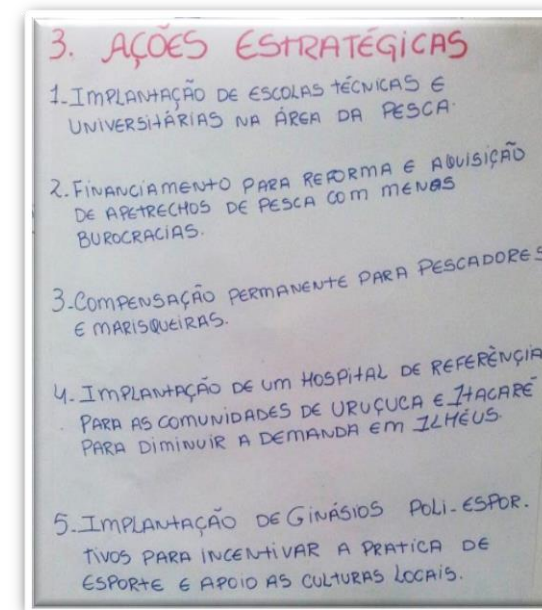 3. AÇÕES ESTRATÉGICAS
1-IMPLANTAÇÃO DE ESCOLAS TÉCNICAS E
UNIVERSITÁRIAS NA ÁREA DA PESCA.
2. FINANCIAMENTO PARA REFORMA E AQUISIÇÃO
DE APETRECHOS DE PESCA COM MENOS
BUROCRACIAS.
3-COMPENSAÇÃO PERMANENTE PARA PESCADORES
E MARISQUEIRAS.
4- IMPLANTAÇÃO DE UM HOSPITAL DE REFERÊNCIA
PARA AS COMUNIDADES DE URUÇUCA E ITACARÉ
PARA DIMINUIR A DEMANDA EM ILHÉUS.
5-IMPLANTAÇÃO DE GINÁSIOS POLI-ESPOR-
TIVOS PARA INCENTIVAR A PRATICA DE
ESPORTE E APOIO AS CULTURAS LOCAIS.